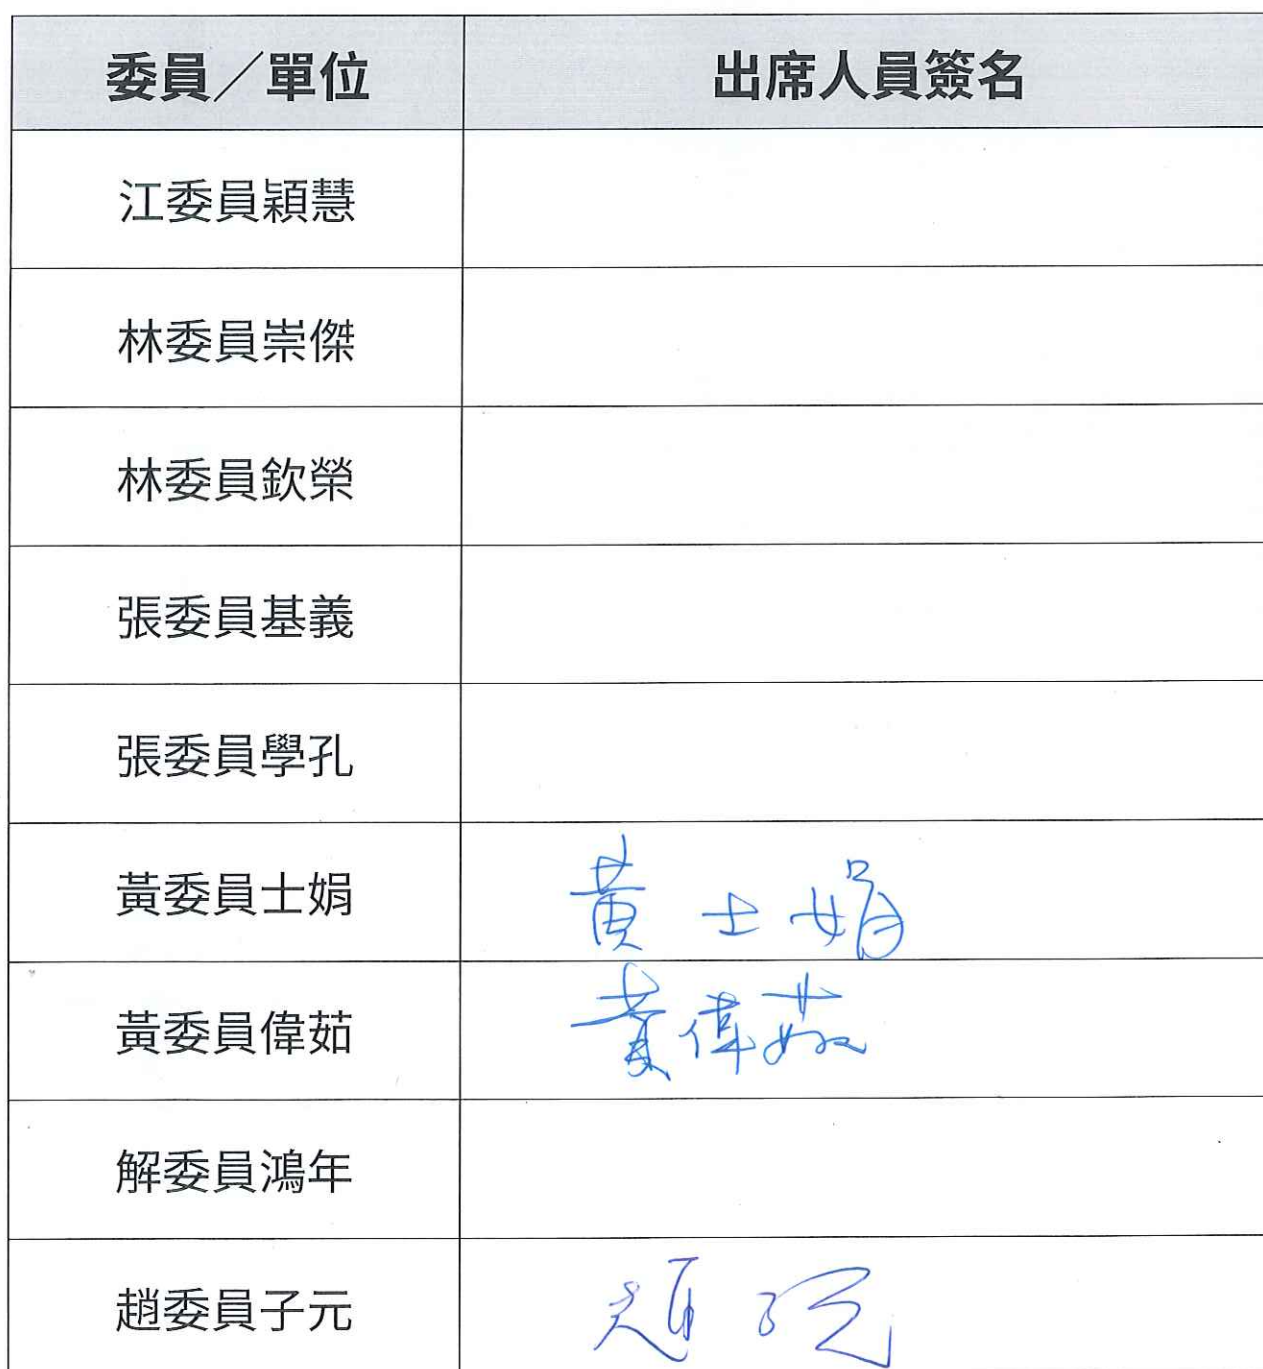 委員／單位 出席人員簽名
江委員穎慧
林委員崇傑
林委員欽榮
張委員基義
張委員學孔
黃委員士娟 黃士娟
黃委員偉茹 黃偉茹
解委員鴻年
趙委員子元 趙子元